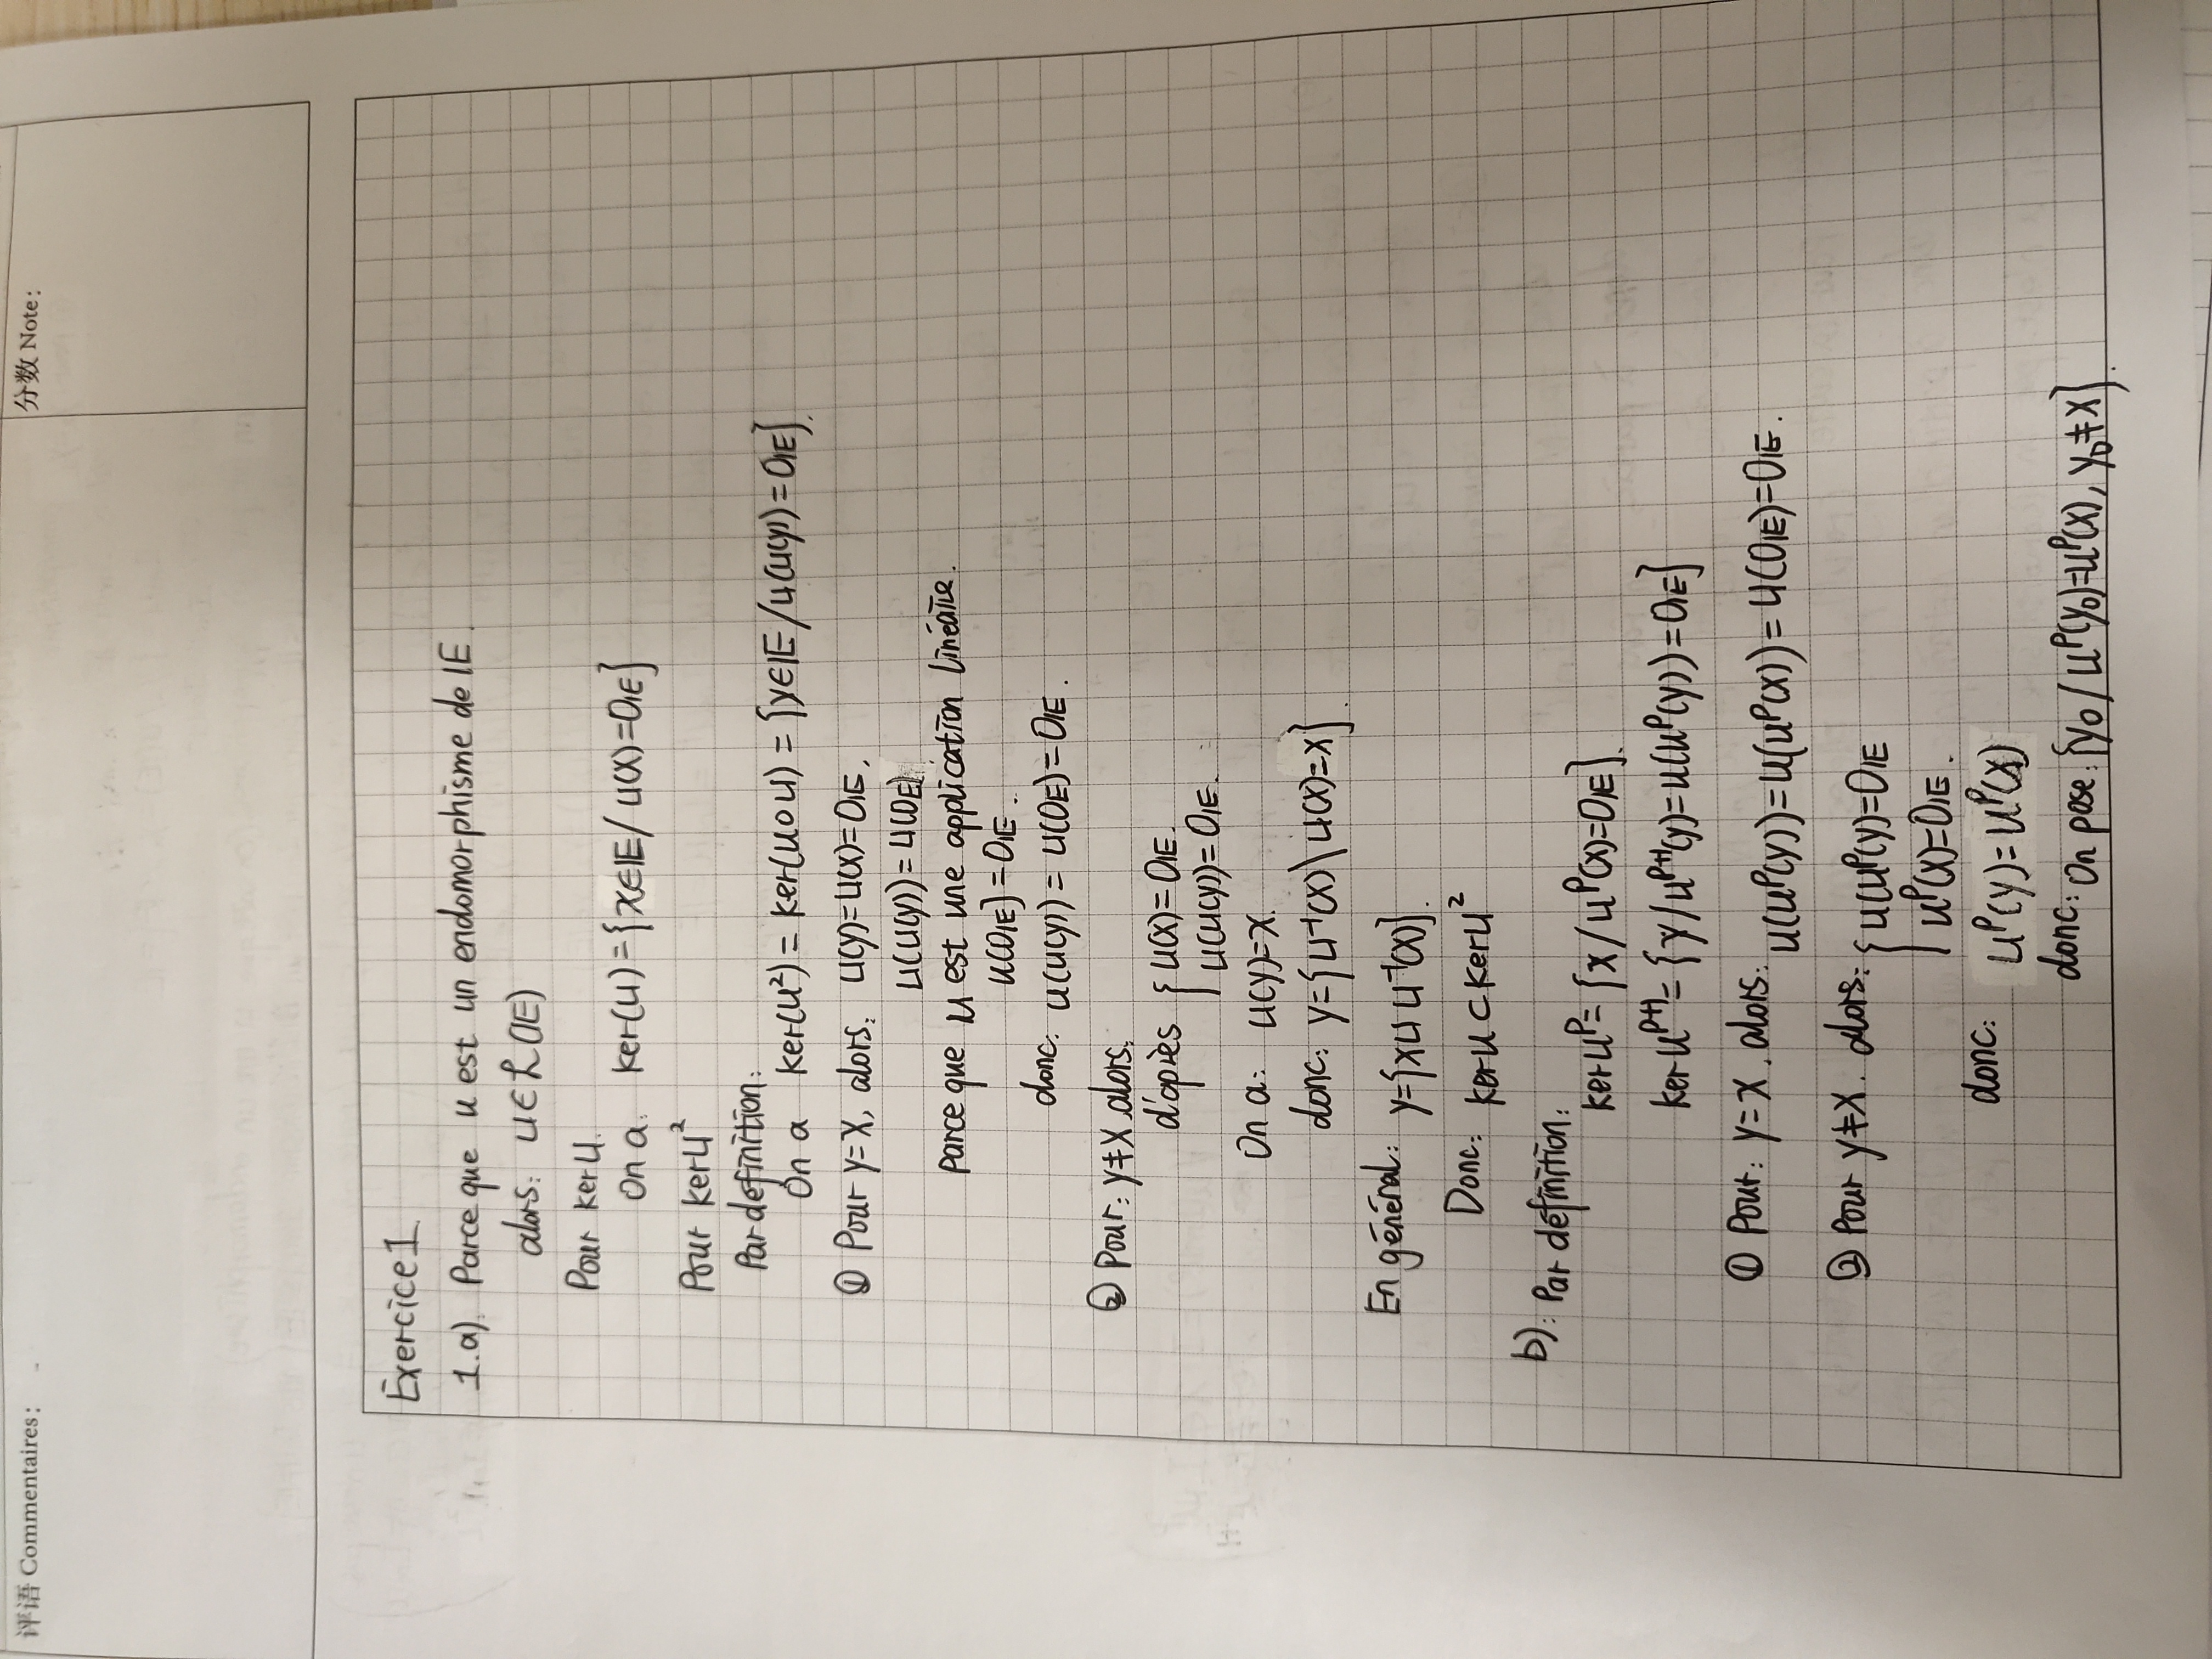 评语 Commentaires:
分数 Note:
Exercice 1
1.a). Parce que u est un endomorphisme de IE.
alors: u∈ℒ(IE)
Pour ker u.
On a. ker(u)={x∈IE/ u(x)=0IE}
Pour ker u²
Par definition:
On a ker(u²) = ker(u∘u) = {y∈IE /u(u(y))=0IE}.
① Pour y=x, alors: u(y)=u(x)=0IE.
u(u(y))=u(0E)
parce que u est une application linéaire.
u(0IE)=0IE.
donc: u(u(y)) = u(0E)=0IE.
② Pour: y≠x alors:
d'après { u(x)=0IE.
u(u(y))=0IE.
On a: u(y)=x.
donc: y={u⁻¹(x)\ u(x)=x}.
En général: y={x∪u⁻¹(x)}.
Donc: ker u ⊂ ker u²
b): Par définition:
ker uᵖ= {x/uᵖ(x)=0IE}.
ker uᵖ⁺¹= {y/uᵖ⁺¹(y)=u(uᵖ(y))=0IE}
① Pour: y=x, alors: u(uᵖ(y))=u(uᵖ(x))=u(0IE)=0IE.
② Pour y≠x. alors: { u(uᵖ(y)=0IE
uᵖ(x)=0IE.
donc: uᵖ(y)=uᵖ(x)
donc: On pose: {y₀/uᵖ(y₀)=uᵖ(x), y₀≠x}.